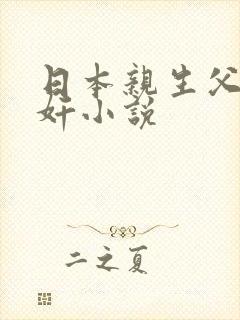 日本親生父
奸小說
二之夏